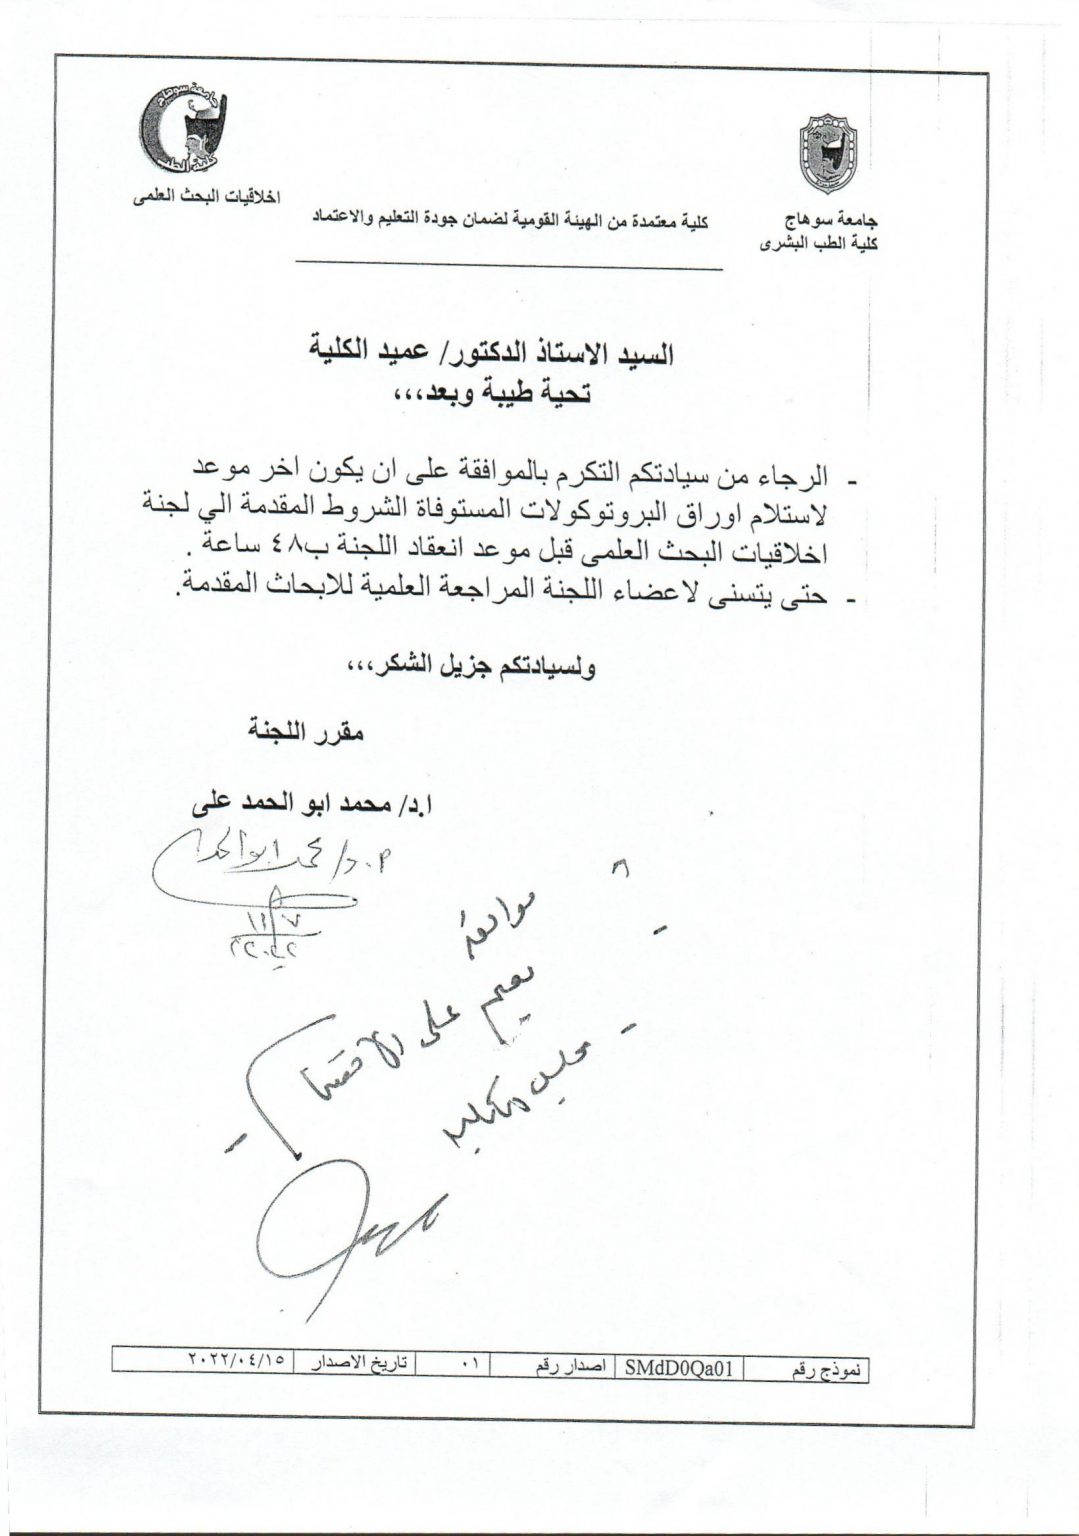 جامعة سوهاج
كلية الطب
اخلاقيات البحث العلمى
جامعة سوهاج
كلية الطب البشرى
كلية معتمدة من الهيئة القومية لضمان جودة التعليم والاعتماد
السيد الاستاذ الدكتور/ عميد الكلية
تحية طيبة وبعد،،،
- الرجاء من سيادتكم التكرم بالموافقة على ان يكون اخر موعد
لاستلام اوراق البروتوكولات المستوفاة الشروط المقدمة الي لجنة
اخلاقيات البحث العلمى قبل موعد انعقاد اللجنة ب٤٨ ساعة .
- حتى يتسنى لاعضاء اللجنة المراجعة العلمية للابحاث المقدمة.
ولسيادتكم جزيل الشكر،،،
مقرر اللجنة
ا.د/ محمد ابو الحمد على
م.د/ محمد ابو الحمد
١١/٧
٢٠٢٢م
موافقة
يعمم على الاقسام
مجلس الكلية
نموذج رقم SMdD0Qa01 اصدار رقم ٠١ تاريخ الاصدار ٢٠٢٢/٠٤/١٥